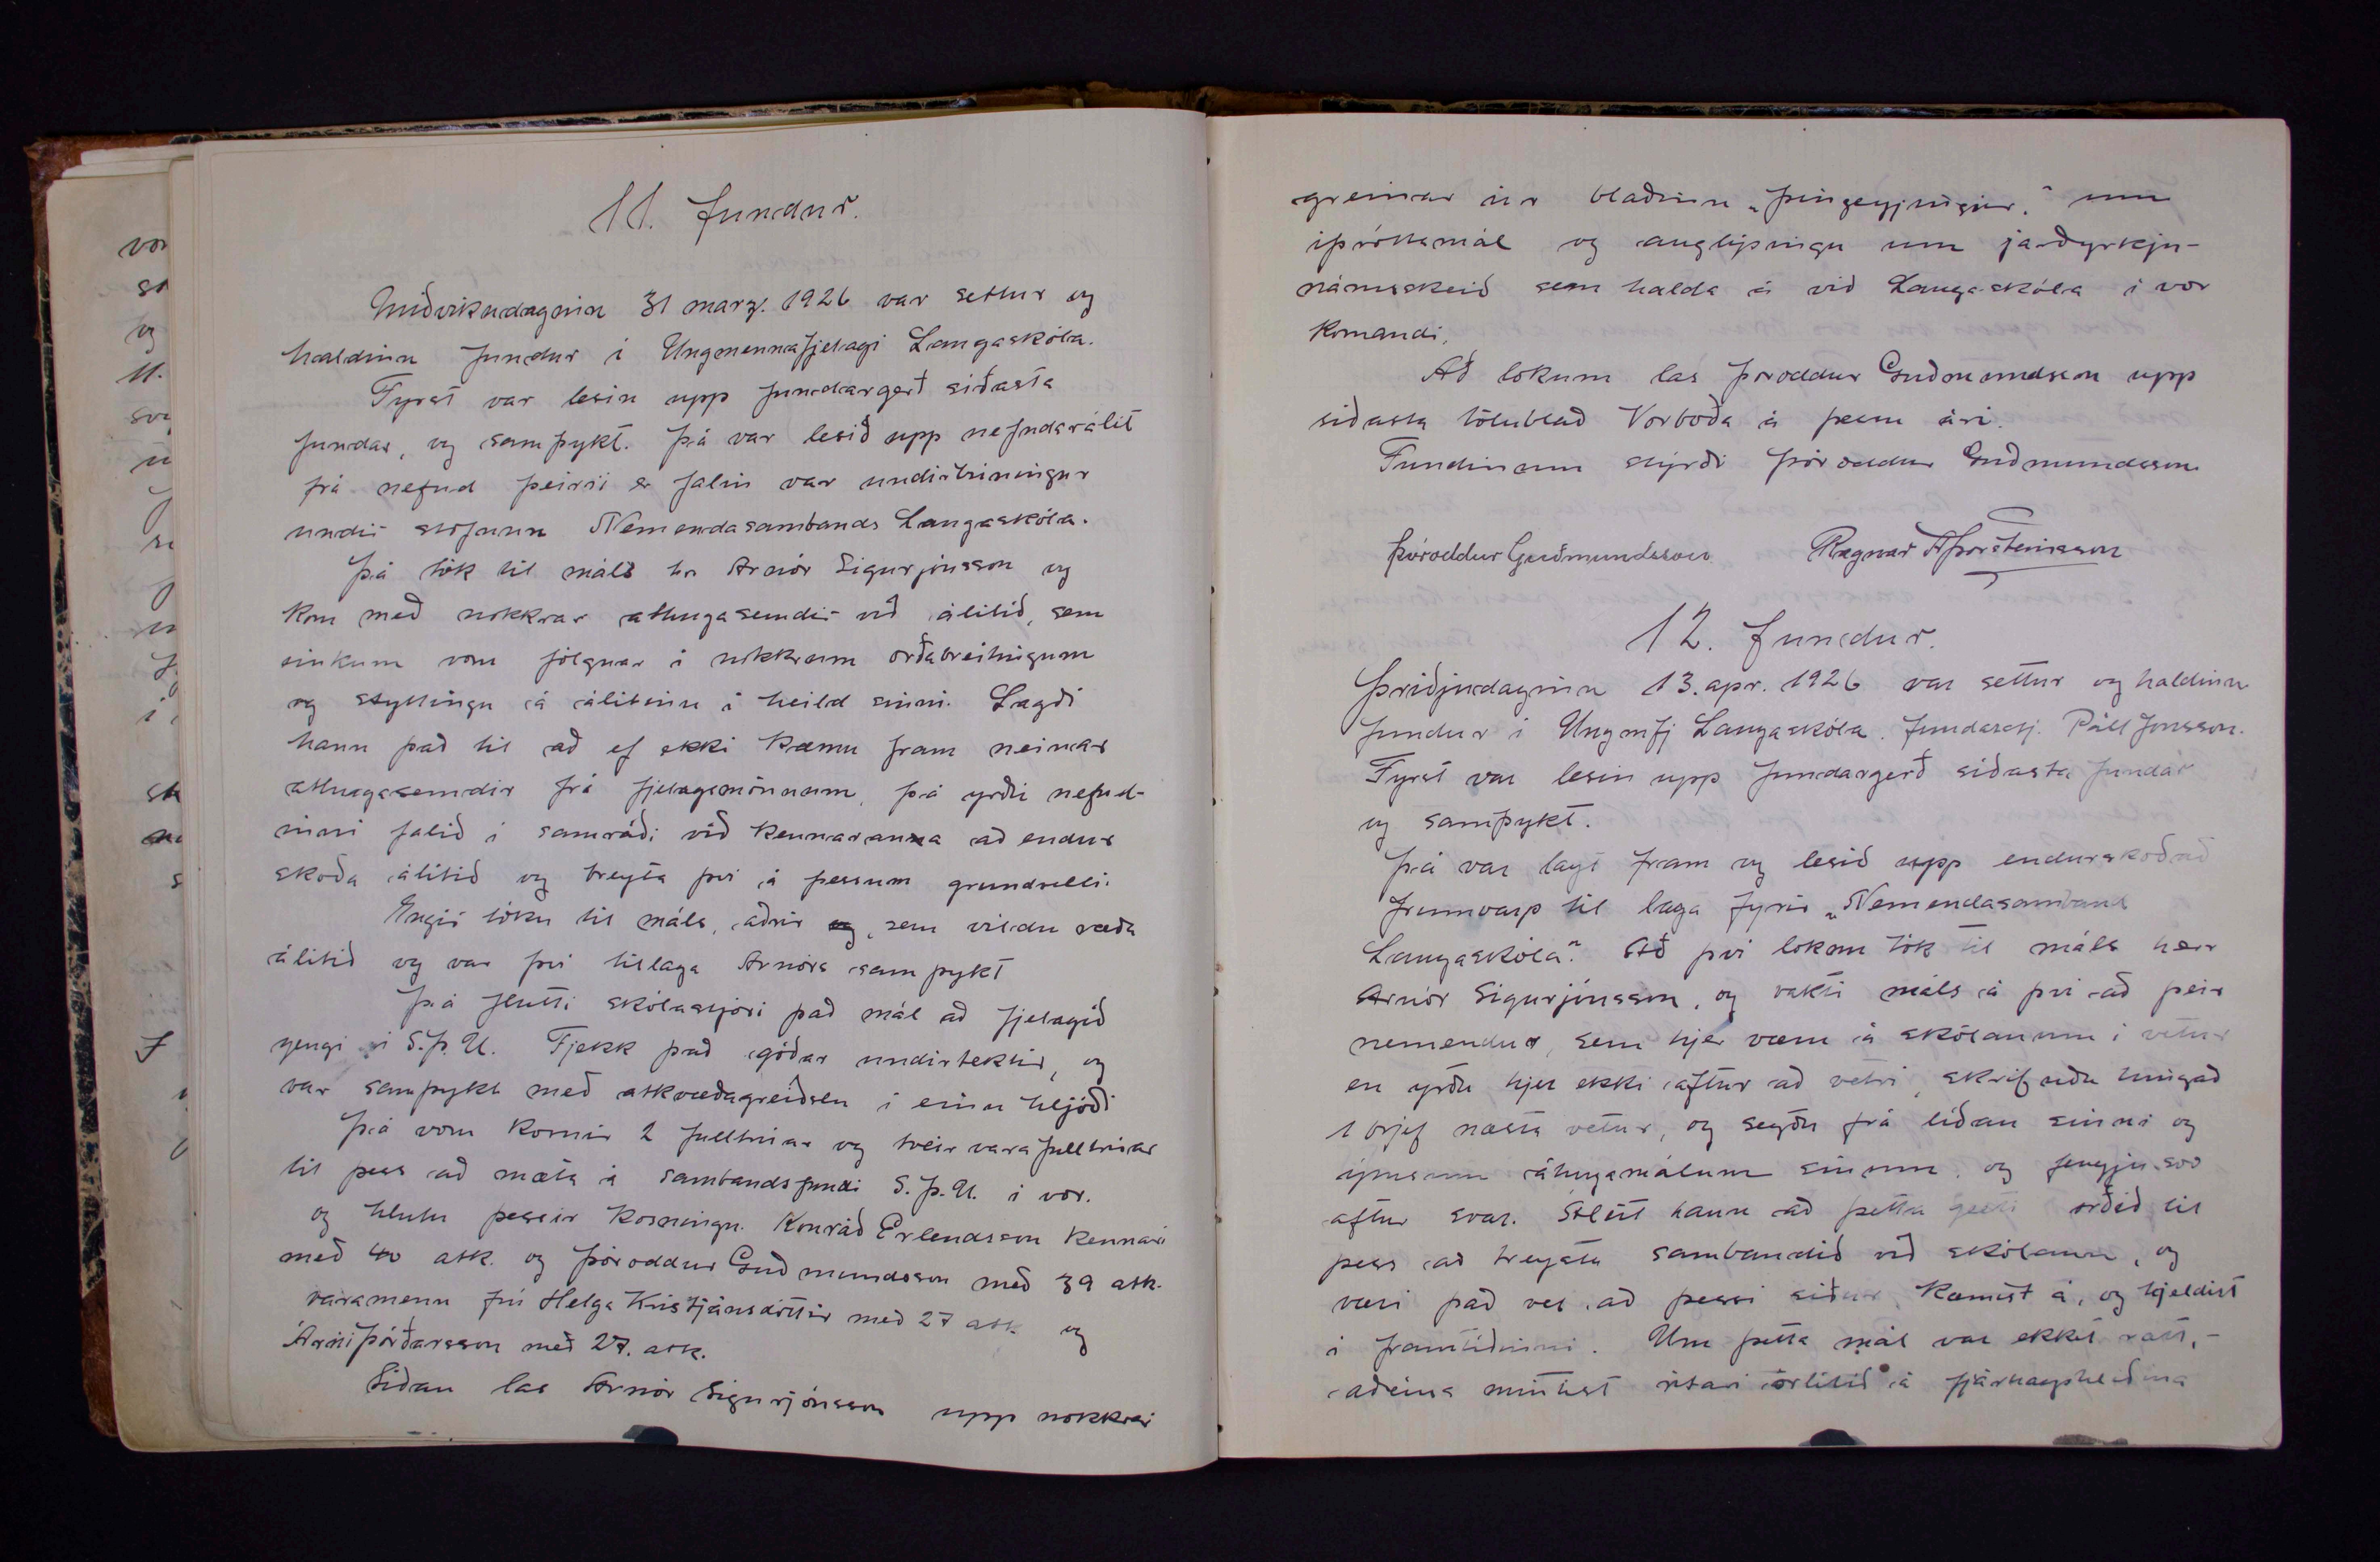 11. fundur.
Miðvikudaginn 31 marz. 1926 var settur og
haldinn fundur i Ungmennafjelagi Laugaskóla.
Fyrst var lesin upp fundargerð siðasta
fundar, og samþykt. Þá var lesið upp nefndarálit
frá nefnd þeirri er falin var undirbúningur
undir stofnun Nemendasambands Laugaskóla.
Þá tók til máls hr Arnór Sigurjónsson og
kom með nokkrar athugasemdir við álitið, sem
einkum voru fólgnar i nokkrum orðabreitingum
og styttingu á álitinu i heild sinni. Lagði
hann það til að ef ekki kæmu fram neinar
athugasemdir frá fjelagsmönnum, þá yrði nefnd-
inni falið i samráði við kennarana að endur
skoða álitið og breyta þvi á þessum grundvelli.
Engir tóku til máls, aðrir, sem vildu ræða
álitið og var þvi tillaga Arnórs samþykt
Þá flutti skólastjóri það mál að fjelagið
gengi i S.Þ.U. Fjekk það góðar undirtektir, og
var samþykt með atkvæðagreiðslu i einu hljóði
Þá voru kosnir 2 fulltrúar og tveir varafulltrúar
til þess að mæta á sambandsfundi S.Þ.U. i vor.
og hlutu þessir kosningu. Konráð Erlendsson kennari
með 40 atk. og Þóroddur Guðmundsson með 39 atk.
varamenn frú Helga Kristjánsdóttir með 27 atk og
Árni Þórðarsson með 27. atk.
Siðan las Arnór Sigurjónsson upp nokkrar
greinar úr blaðinu „Þingeyingur." um
iþróttamál og auglýsingu um jarðyrkju-
námsskeið sem halda á við Laugaskóla i vor
komandi.
Að lokum las Þóroddur Guðmundsson upp
siðasta tölublað Vorboða á þessu ári.
Fundinum stýrði Þóroddur Guðmundsson
Þóroddur Guðmundsson Ragnar A Þorsteinsson
12. fundur.
Þriðjudaginn 13. apr. 1926 var settur og haldinn
fundur i Ungmfj Laugaskóla. fundarstj. Páll Jónsson.
Fyrst var lesin upp fundargerð siðasta fundar
og samþykt.
Þá var lagt fram og lesið upp endurskoðað
frumvarp til laga fyrir „Nemendasamband
Laugaskóla". Að þvi loknu tók til máls herr
Arnór Sigurjónsson, og vakti máls á þvi að þeir
nemendur, sem hjer væru á skólanum i vetur
en yrðu hjer ekki aftur að vetri, skrifuðu hingað
1 brjef næsta vetur, og segðu frá liðan sinni og
ýmsum áhugamálum sinum. og fengju svo
aftur svar. Áleit hann að þetta gæti orðið til
þess að treysta sambandið við skólann, og
væri það vel að þessi siður kæmist á, og hjeldist
i framtiðinni. Um þetta mál var ekkit rætt,-
aðeins mintist ritari örlitið á fjárhagshliðina